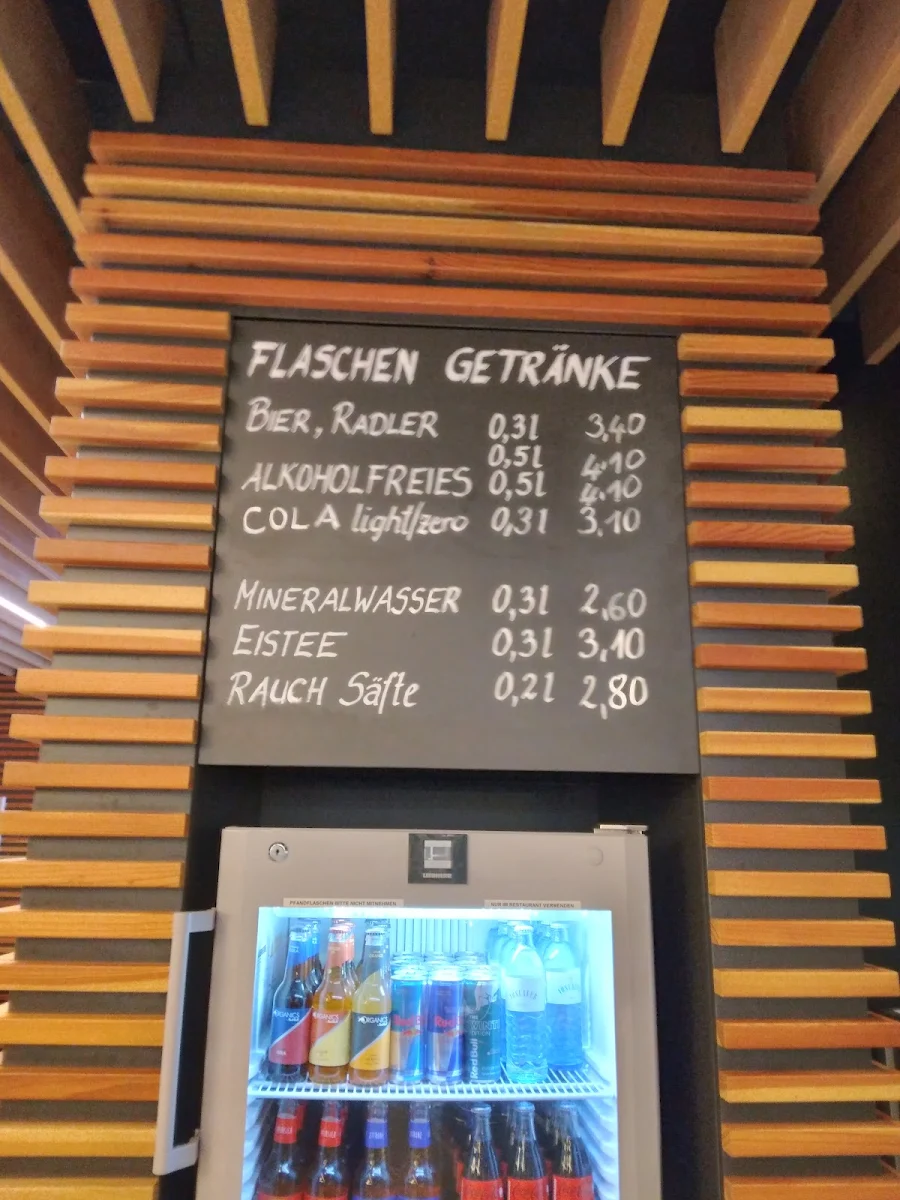 FLASCHEN GETRÄNKE
BIER, RADLER 0,3l 3,40
0,5l 4,10
ALKOHOLFREIES 0,5l 4,10
COLA light/zero 0,3l 3,10
MINERALWASSER 0,3l 2,60
EISTEE 0,3l 3,10
RAUCH Säfte 0,2l 2,80
LIEBHERR
PFANDFLASCHEN BITTE NICHT MITNEHMEN
NUR IM RESTAURANT VERWENDEN
ORGANICS ORGANICS ORGANICS
Red Bull